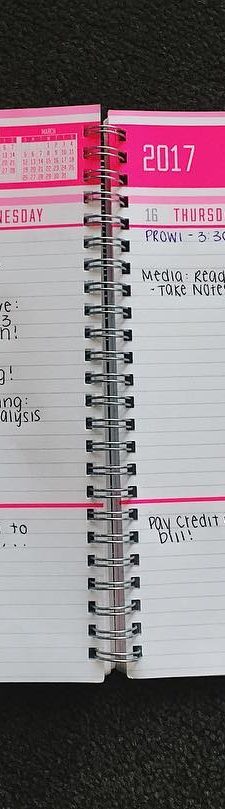 MARCH
NESDAY
ve:
3
n!
g!
ng:
alysis
to
...
2017
16 THURSD
PROWI - 3:30
Media: Read
- Take Note
Pay Credit
bill!